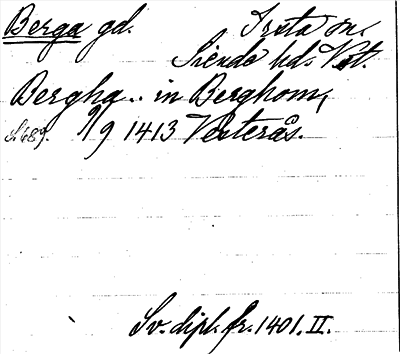 Berga gd. Irsta sn.
Siende hd. Vstm.
Bergha .. in Berghom,
S. 689. 9/9 1413 Vesterås.
Sv. dipl. fr. 1401. II.